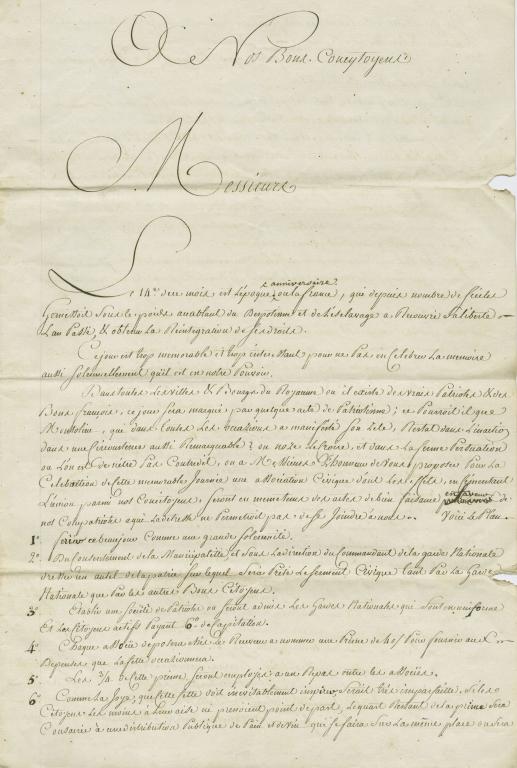 A Nos Bons Concytoyens
Messieurs
anniversaire
Le 14e de ce mois est l'epoque ou la france, qui depuis nombre de siécles
Gemissoit sous le poids accablant du Despotisme et de l'esclavage a Recouvré sa liberté
L'an Passé, & obtenu La Réintegration de ses droits.
Ce jour est trop memorable et trop interessant pour ne Pas en Celebrer La memoire
aussi solemnellement qu'il est en notre Pouvoir.
Si dans toutes Les villes & Bourgs du Royaume ou il existe de vrais Patriotes & des
Bons françois, ce jour sera marqué par quelque acte de Patriotisme; ce Pourroit il que
que dans toutes Les occasions a manifesté son Zele, Restat dans L'inaction
dans une Circonstance aussi Remarquable? on n'oze le Croire, et dans La ferme Persuation
ou L'on est de n'etre Pas Contredit, on a Messieurs L'honneur de Vous proposer Pour La
Celebration de cette memorable Journée une association Civique dont Les effets, en Cimentant
L'union parmi nos Concitoyens, seront en meme tems des actes de bien faisance en faveur de
nos Compatriotes a qui La detresse ne Permettroit pas de se Joindre a nous. Voicé Le Plan.
1° ce beau jour Comme une grande solemnité.
2° Du Consentement de la Municipalité et sous La direction du Commandant de la garde Nationale
un autel de la patrie sur lequel sera Prété Le serment Civique tant Par La Garde
Nationale que Par les autres Bons Citoyens.
3° Etablir une société de Patriotes ou seront admis Les Gardes Nationales qui sont en uniforme
Et Les Citoyens actifs Payant de Capitation.
4° Chaque associé deposera chés Le Receveur a nommer une Prime de 40s Pour fournir aux
Depenses que La fete occasionnera.
5° Les 3/4 de cette prime seront employés a un Repas entre les associés.
6° Comme La Joye, que cette fete doit inévitablement inspirer, seroit très imparfaite, si Les
Citoyens Les moins a Leur aise ne prenoient point de part, Le quart Restant de la prime sera
Consacré a une distribution Publique de Pain et de vin qui se faira sur La même place ou sera